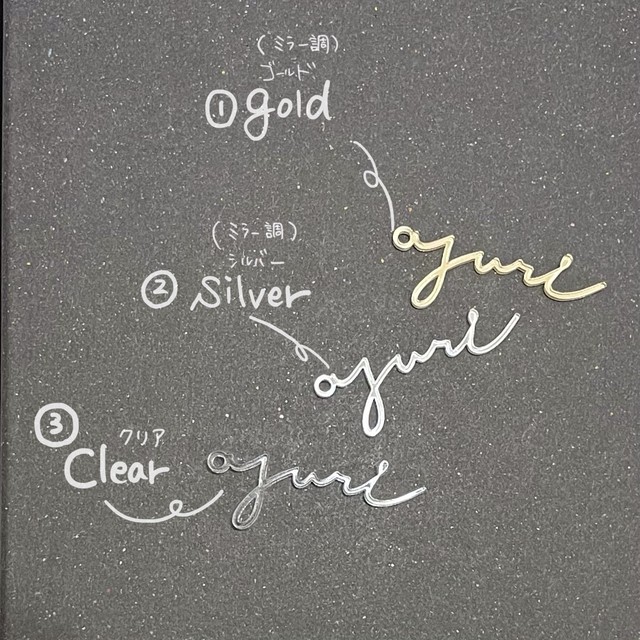 (ミラー調)
ゴールド
① gold
(ミラー調)
シルバー
② Silver
③
クリア
Clear
ayuri
ayuri
ayuri